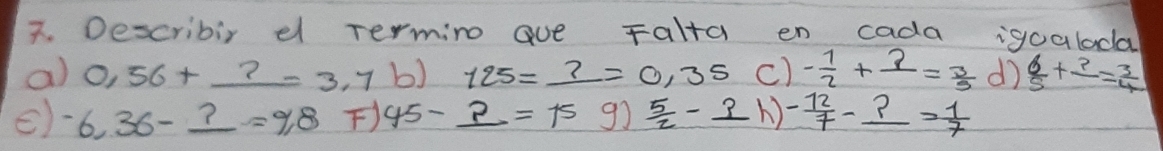 7. Describir el Termino que Falta en cada igoalada
a) 0,56 + ? = 3,7 b) 125 = ? = 0,35 c) -1/2 + ? = 3/5 d) 6/5 + ? = 3/4
e) -6,36 - ? = 9,8 F) 45 - ? = 15 g) 5/2 - ? h) -12/7 - ? = 1/7